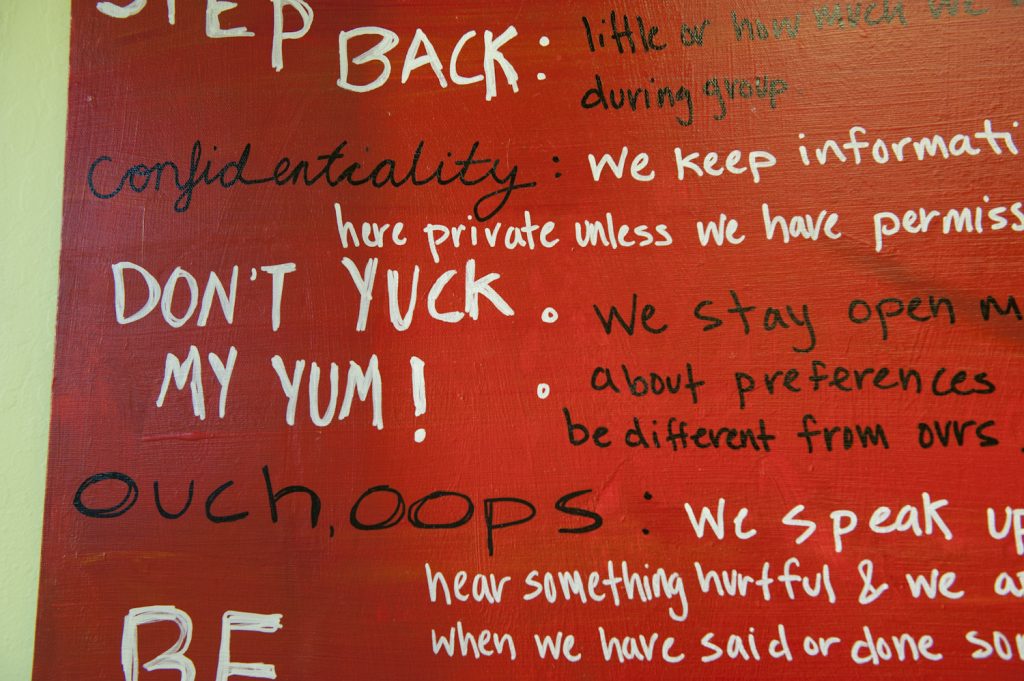 STEP
BACK: little or how much we
during group.
Confidentiality: We keep informati
here private unless we have permiss
DON'T YUCK : We stay open m
MY YUM! about preferences
be different from ours
ouch, oops: We speak up
hear something hurtful & we a
when we have said or done som
BE